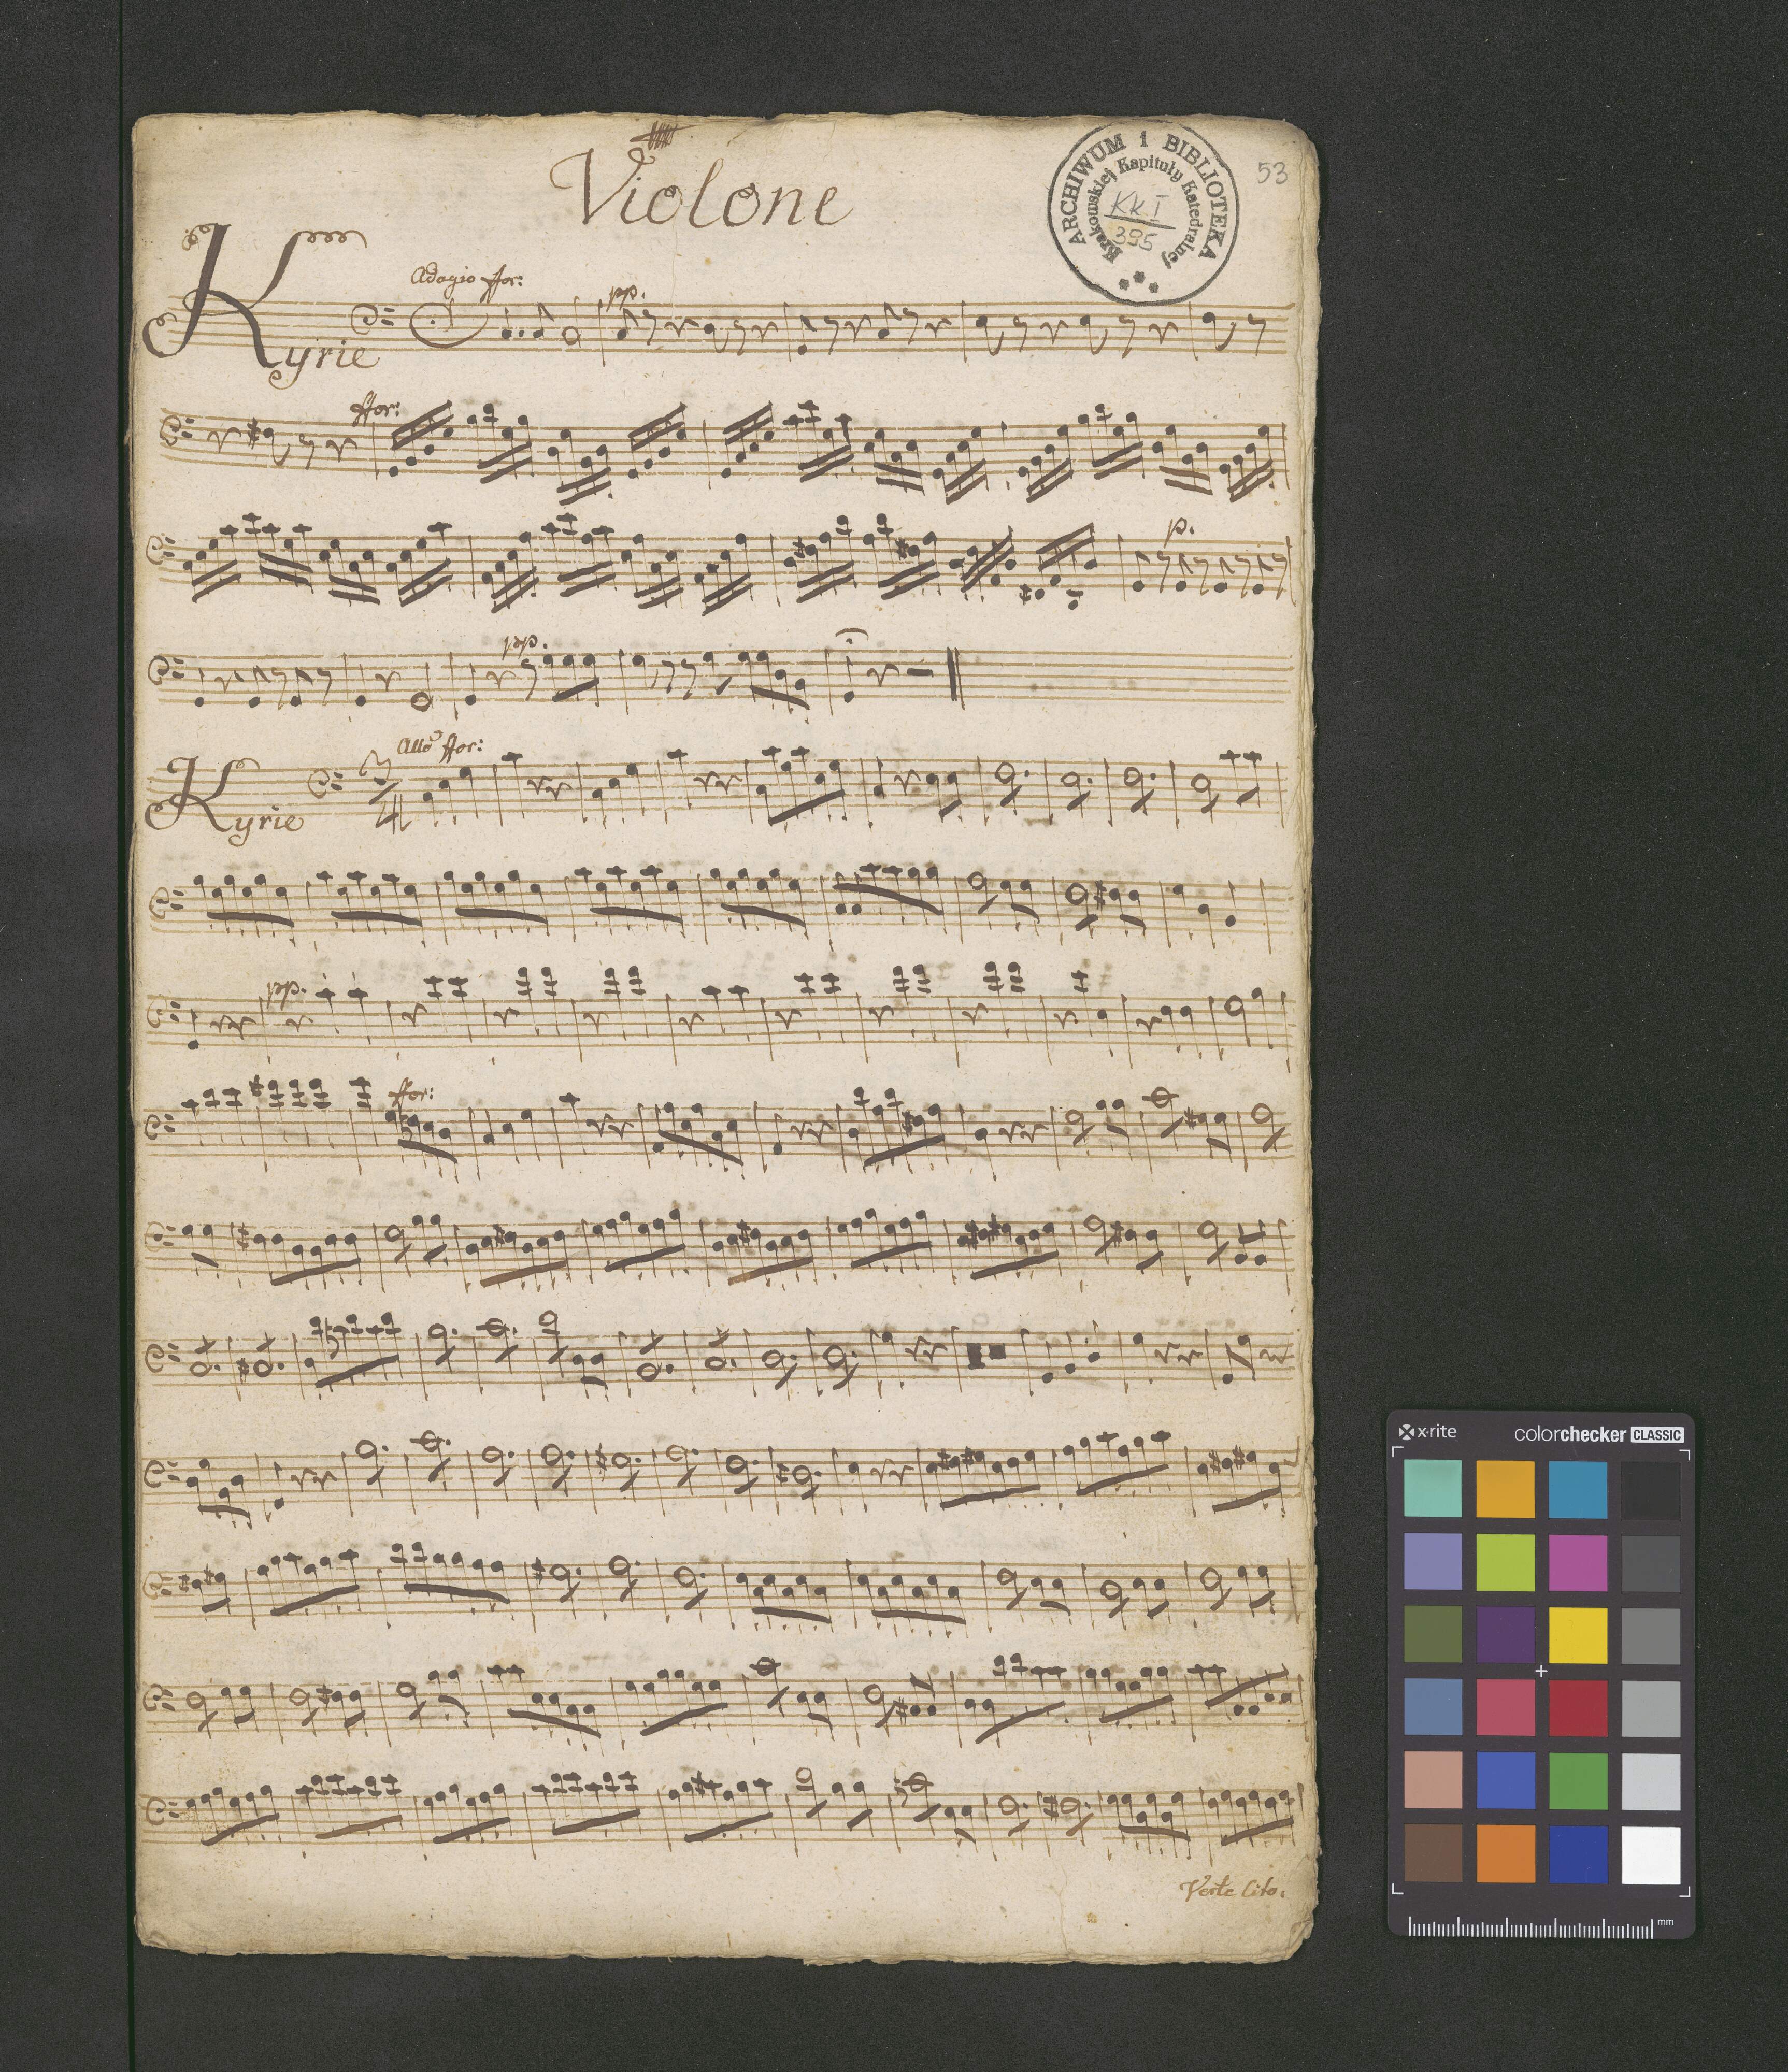 Violone
ARCHIWUM i BIBLIOTEKA
Krakowskiej Kapituły Katedralnej
Kk. I
395
53
Adagio ffor:
pp.
Kyrie
ffor:
p.
pp.
Allo ffor:
Kyrie
3
4
pp.
ffor:
Verte Cito.
x·rite
colorchecker CLASSIC
mm